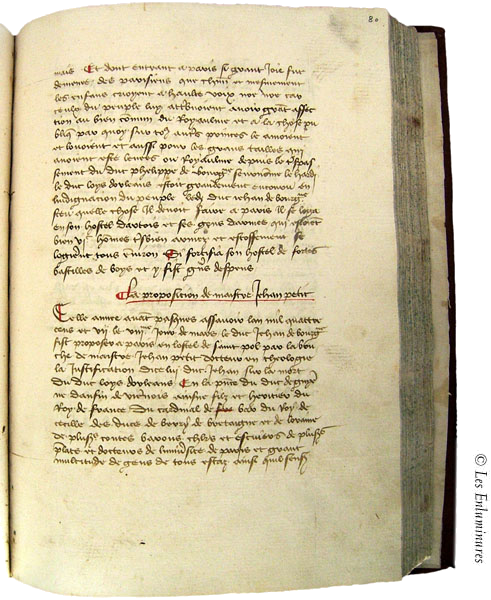 80
mais Et dont entrant a paris si grant Joie fut
demenee des parisiens que
les enfans crioyent a haulte voix noe noe car
ceulx du peuple luy attribuoient avoir grant affec
tion au bien commun du Royaulme et a la chose pu
bliq par quoy sur tous autres princes le amoient
et louoient et aussi pour les grans tailles qui
avoient este levees ou Royaulme depuis le trespas
sement du duc phelippe de bourgne le hardy
le duc loys dorleans estoit grandement encouru en
Indignation du peuple le duc Jehan de bourgne
quelle chose Il devoit faire a paris Il se loga
en son hostel dartois et ses gens darmes qui estoient
bien hommes bien armez et
logierent tous environ Et fortifia son hostel de fortes
bastilles de boys et y fist grans despens
La proposition de maistre Jehan petit
Celle annee avant pasques assavoir lan mil quatre
cens et vii le viiie Jour de mars le duc Jehan de bourgne
fist proposer a paris en lostel de saint pol par la bou
che de maistre Jehan petit docteur en theologie
la Justification dicelui duc Jehan sur la mort
du duc loys dorleans En la pnce du duc de guyen
ne daulfin de viennois aisne filz et heritier du
Roy de France Du cardinal de bar du Roy de
cecille des ducs de berry de bretaigne et de lorraine
de plusrs contes barons chlrs et escuiers de plusrs
et docteurs de luniversite de paris et grant
multitude de gens de tous estaz
© Les Enluminures